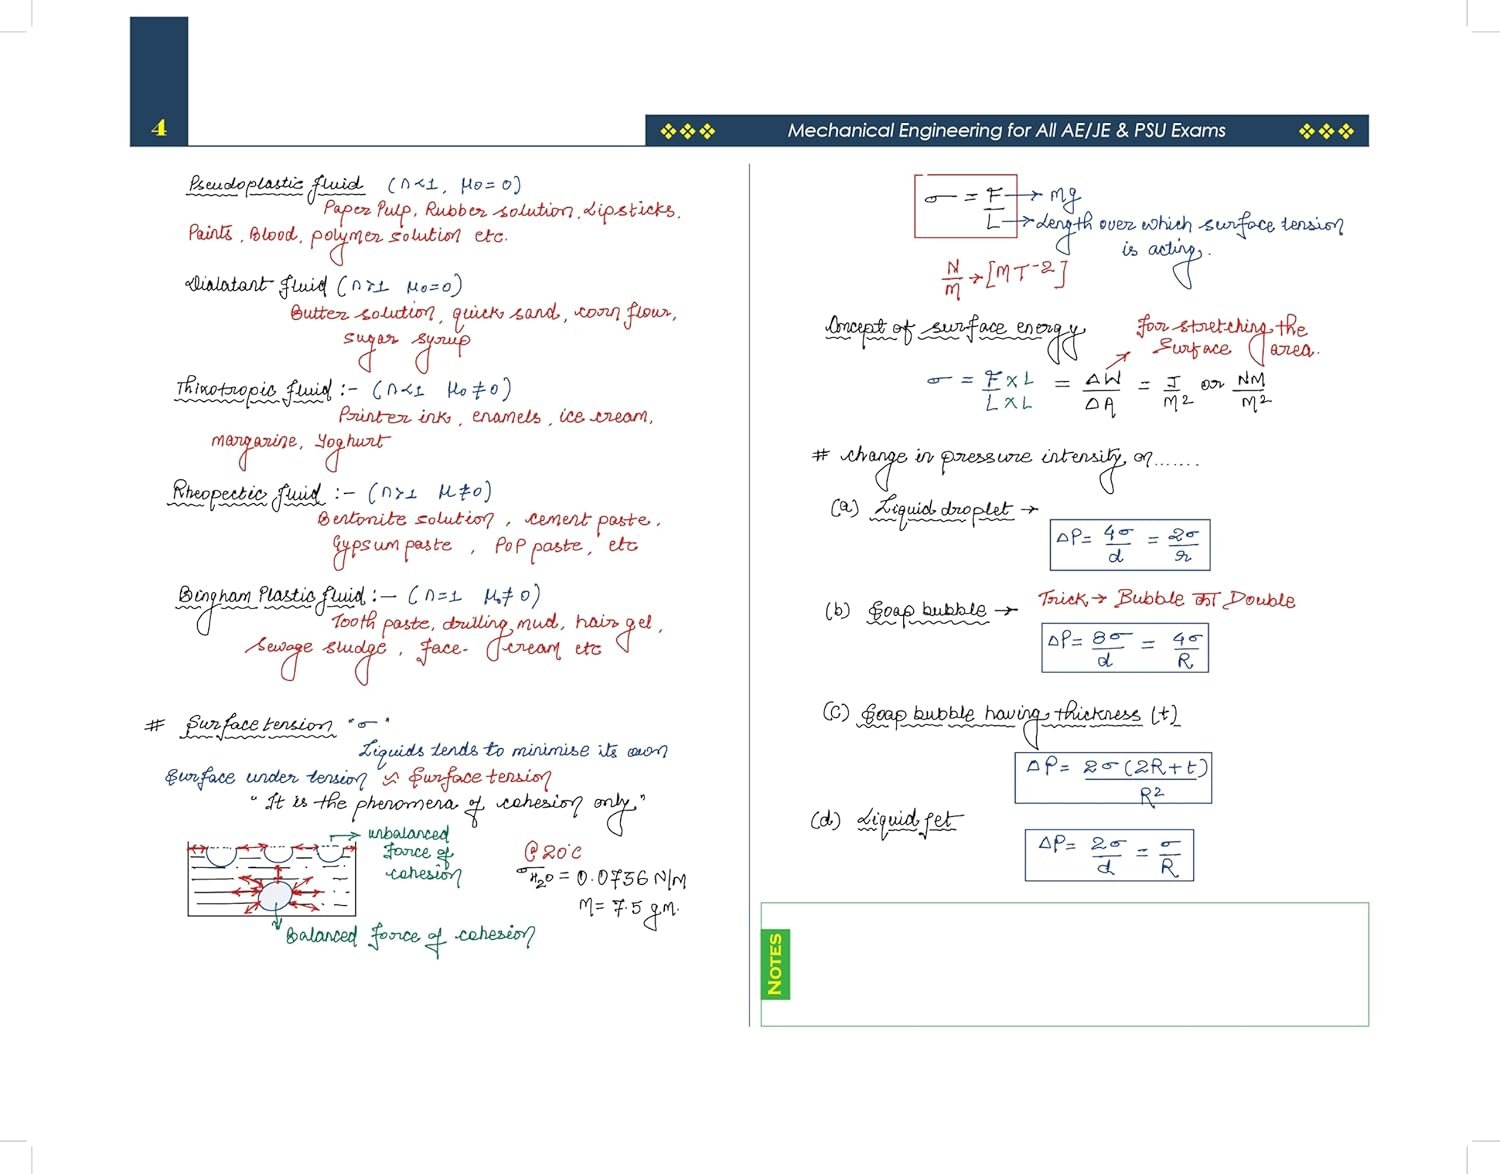 4
Mechanical Engineering for All AE/JE & PSU Exams
Pseudoplastic fluid (n<1, μ0=0)
Paper Pulp, Rubber solution, Lipsticks,
Paints, Blood, polymer solution etc.
Dialatant fluid (n>1 μ0=0)
Butter solution, quick sand, corn flour,
sugar syrup
Thixotropic fluid :- (n<1 μ0≠0)
Printer ink, enamels, ice cream,
margarine, Yoghurt
Rheopectic fluid :- (n>1 μ≠0)
Bentonite solution, cement paste,
Gypsum paste, PoP paste, etc
Bingham Plastic fluid :- (n=1 μ0≠0)
Tooth paste, drilling mud, hair gel,
Sewage sludge, face-cream etc
# Surface tension "σ"
Liquids tends to minimise its own
surface under tension ≈ Surface tension
"It is the phenomera of cohesion only"
unbalanced
force of
cohesion
@20°C
σH2O = 0.0736 N/M
M= 7.5 gm.
Balanced force of cohesion
σ = F/L
→ mg
→ Length over which surface tension
is acting.
N/m → [MT-2]
Concept of surface energy
for stretching the
Surface area.
σ = F×L/L×L = ΔW/ΔA = J/M² or NM/M²
# change in pressure intensity on.......
(a) Liquid droplet →
ΔP= 4σ/d = 2σ/r
(b) Soap bubble →
Trick → Bubble का Double
ΔP= 8σ/d = 4σ/R
(C) Soap bubble having thickness (t)
ΔP= 2σ(2R+t)/R²
(d) Liquid Jet
ΔP= 2σ/d = σ/R
NOTES